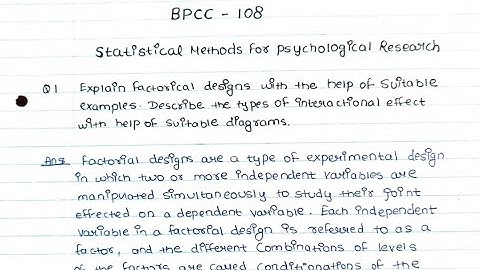 BPCC - 108
Statistical Methods for Psychological Research
Q1 Explain factorical designs with the help of Suitable
examples. Describe the types of interactional effect
with help of suitable diagrams.
Ans factorial designs are a type of experimental design
in which two or more independent variables are
manipuated simultaneously to study their joint
effected on a dependent variable. Each independent
variable in a factorial design is referred to as a
factor, and the different Combinations of levels
of the factors are caled conditionations of the